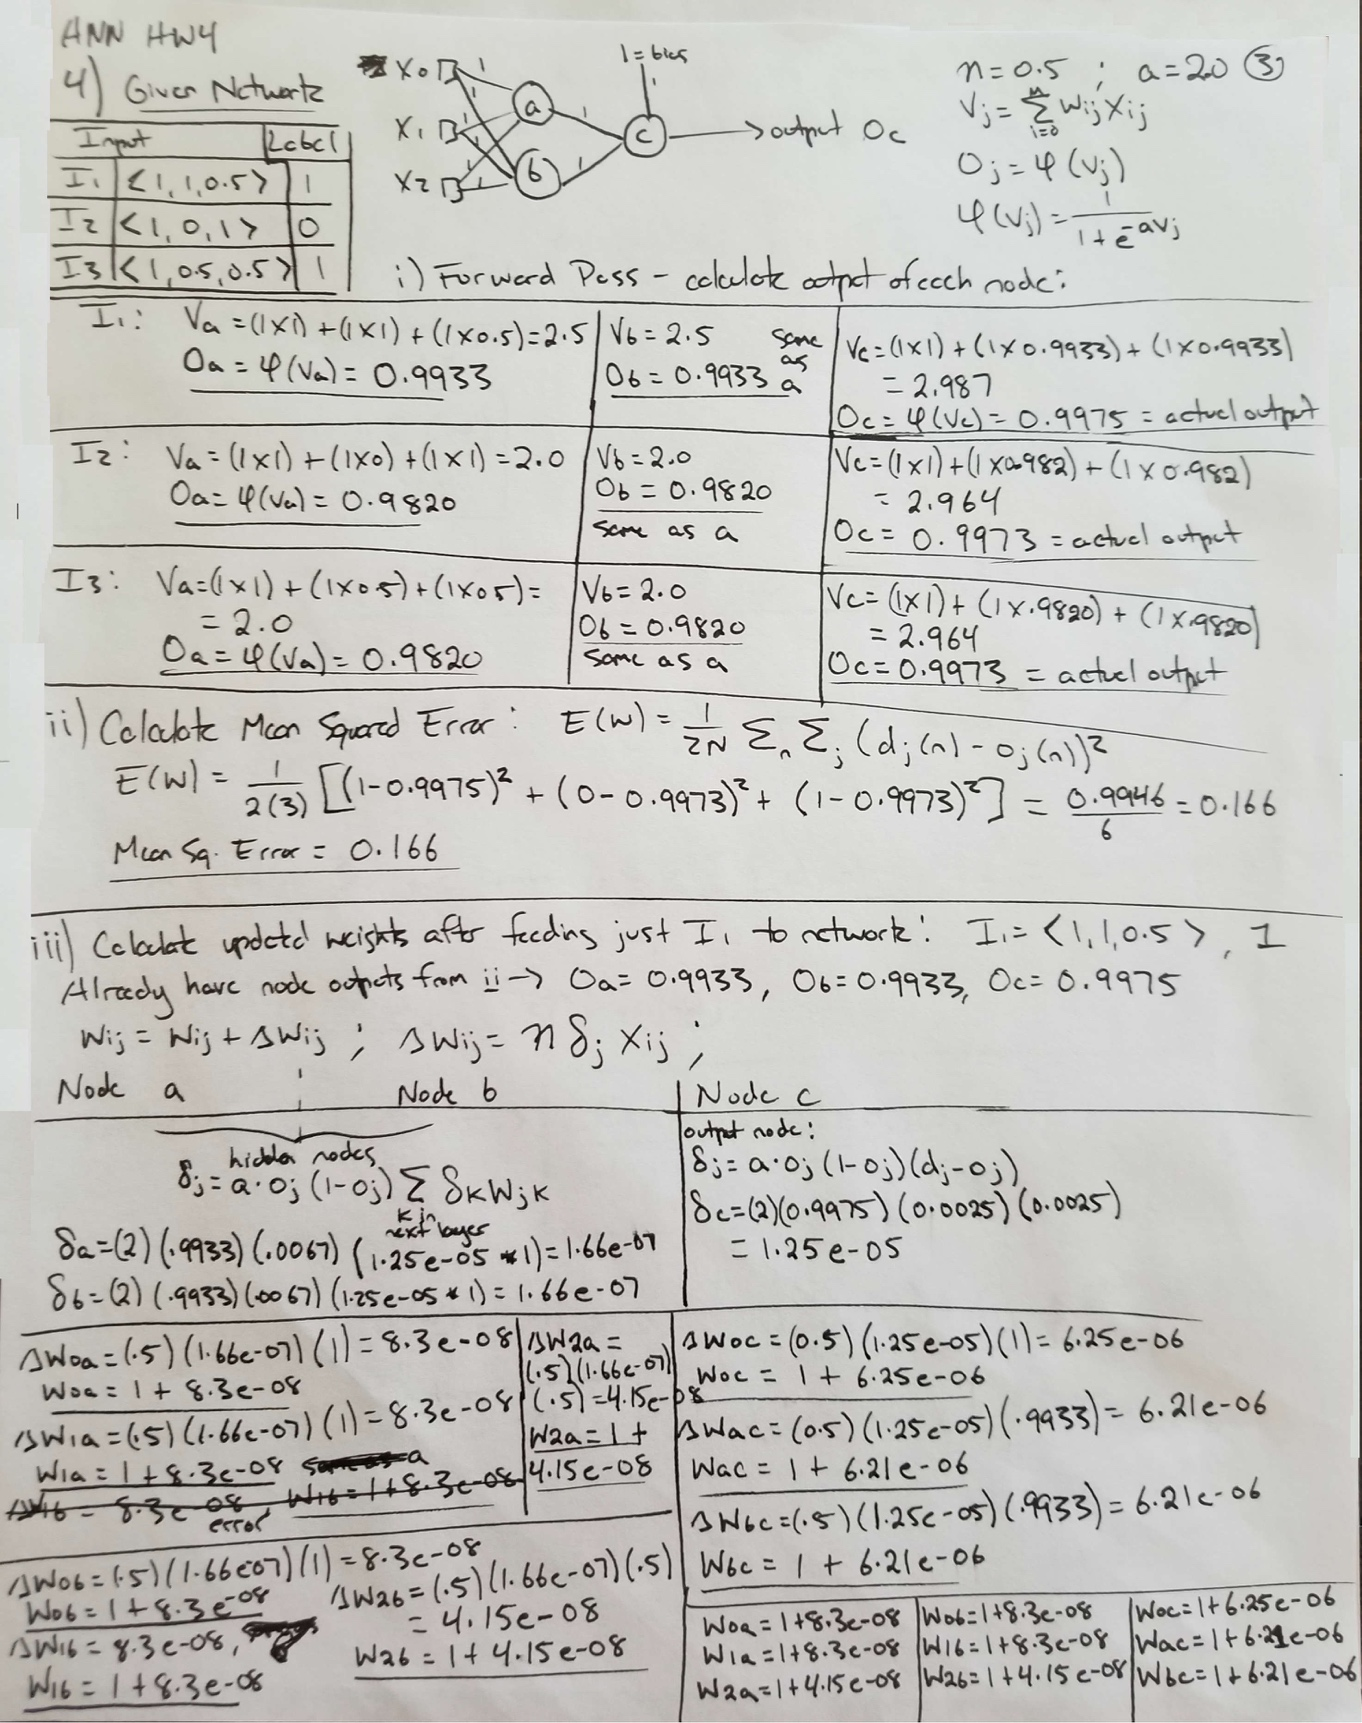 ANN HW4
4) Given Network
Input Label
I₁ <1, 1, 0.5> 1
I₂ <1, 0, 1> 0
I₃ <1, 0.5, 0.5> 1
X₀ 1 1
X₁ 1 1
X₂ 1 1
a
b
1 1
1 = bias
1
c → output Oc
n = 0.5 ; a = 2.0 ③
Vj = Σ(i=0 to n) Wij Xij
Oj = φ(Vj)
φ(Vj) = 1 / (1 + e^-aVj)
i) Forward Pass - calculate output of each node:
I₁: Va = (1x1) + (1x1) + (1x0.5) = 2.5
Oa = φ(Va) = 0.9933
Vb = 2.5
Ob = 0.9933
same as a
Vc = (1x1) + (1x0.9933) + (1x0.9933)
= 2.987
Oc = φ(Vc) = 0.9975 = actual output
I₂: Va = (1x1) + (1x0) + (1x1) = 2.0
Oa = φ(Va) = 0.9820
Vb = 2.0
Ob = 0.9820
same as a
Vc = (1x1) + (1x0.982) + (1x0.982)
= 2.964
Oc = 0.9973 = actual output
I₃: Va = (1x1) + (1x0.5) + (1x0.5) =
= 2.0
Oa = φ(Va) = 0.9820
Vb = 2.0
Ob = 0.9820
same as a
Vc = (1x1) + (1x.9820) + (1x.9820)
= 2.964
Oc = 0.9973 = actual output
ii) Calculate Mean Squared Error: E(W) = 1/2N Σn Σj (dj(n) - oj(n))²
E(W) = 1/2(3) [(1-0.9975)² + (0-0.9973)² + (1-0.9973)²] = 0.9946/6 = 0.166
Mean Sq. Error = 0.166
iii) Calculate updated weights after feeding just I₁ to network: I₁ = <1, 1, 0.5>, 1
Already have node outputs from ii → Oa = 0.9933, Ob = 0.9933, Oc = 0.9975
Wij = Wij + ΔWij ; ΔWij = n δj Xij ;
Node a Node b Node c
hidden nodes
δj = a·Oj (1-Oj) Σ δk Wjk
k in next layer
δa = (2)(.9933)(.0067)(1.25e-05 * 1) = 1.66e-07
δb = (2)(.9933)(.0067)(1.25e-05 * 1) = 1.66e-07
output node:
δj = a·Oj (1-Oj)(dj-Oj)
δc = (2)(0.9975)(0.0025)(0.0025)
= 1.25e-05
ΔW0a = (.5)(1.66e-07)(1) = 8.3e-08
W0a = 1 + 8.3e-08
ΔW1a = (.5)(1.66e-07)(1) = 8.3e-08
W1a = 1 + 8.3e-08 same as a
ΔW1b = 8.3e-08, W1b = 1 + 8.3e-08
error
ΔW2a =
(.5)(1.66e-07)
(.5) = 4.15e-08
W2a = 1 +
4.15e-08
ΔW0c = (0.5)(1.25e-05)(1) = 6.25e-06
W0c = 1 + 6.25e-06
ΔWac = (0.5)(1.25e-05)(.9933) = 6.21e-06
Wac = 1 + 6.21e-06
ΔWbc = (.5)(1.25e-05)(.9933) = 6.21e-06
Wbc = 1 + 6.21e-06
ΔW0b = (.5)(1.66e07)(1) = 8.3e-08
W0b = 1 + 8.3e-08
ΔW1b = 8.3e-08,
W1b = 1 + 8.3e-08
ΔW2b = (.5)(1.66e-07)(.5)
= 4.15e-08
W2b = 1 + 4.15e-08
W0a = 1+8.3e-08 W0b = 1+8.3e-08 W0c = 1+6.25e-06
W1a = 1+8.3e-08 W1b = 1+8.3e-08 Wac = 1+6.21e-06
W2a = 1+4.15e-08 W2b = 1+4.15e-08 Wbc = 1+6.21e-06